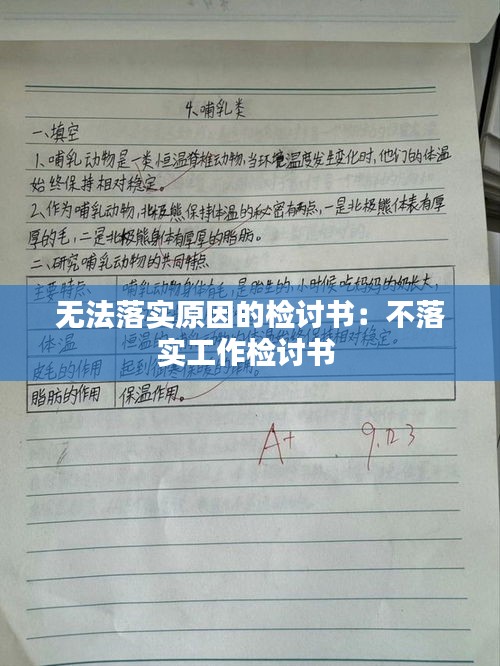 4、哺乳类
一、填空
1、哺乳动物是一类恒温脊椎动物,当环境温度发生变化时,他们的体温
始终保持相对稳定。
2、作为哺乳动物,北极熊保持体温的秘密有两点,一是北极熊体表有厚
厚的毛,二是北极熊身体有厚厚的脂肪。
二、研究哺乳动物的共同特点
主要特点 哺乳动物身体有毛,是胎生的,小时候吃妈妈的奶长大,
无法落实原因的检讨书：不落
实工作检讨书
体温 恒温 始终保持相对稳定。
皮毛的作用 起到
脂肪的作用 保温作用。
A+ 9.23